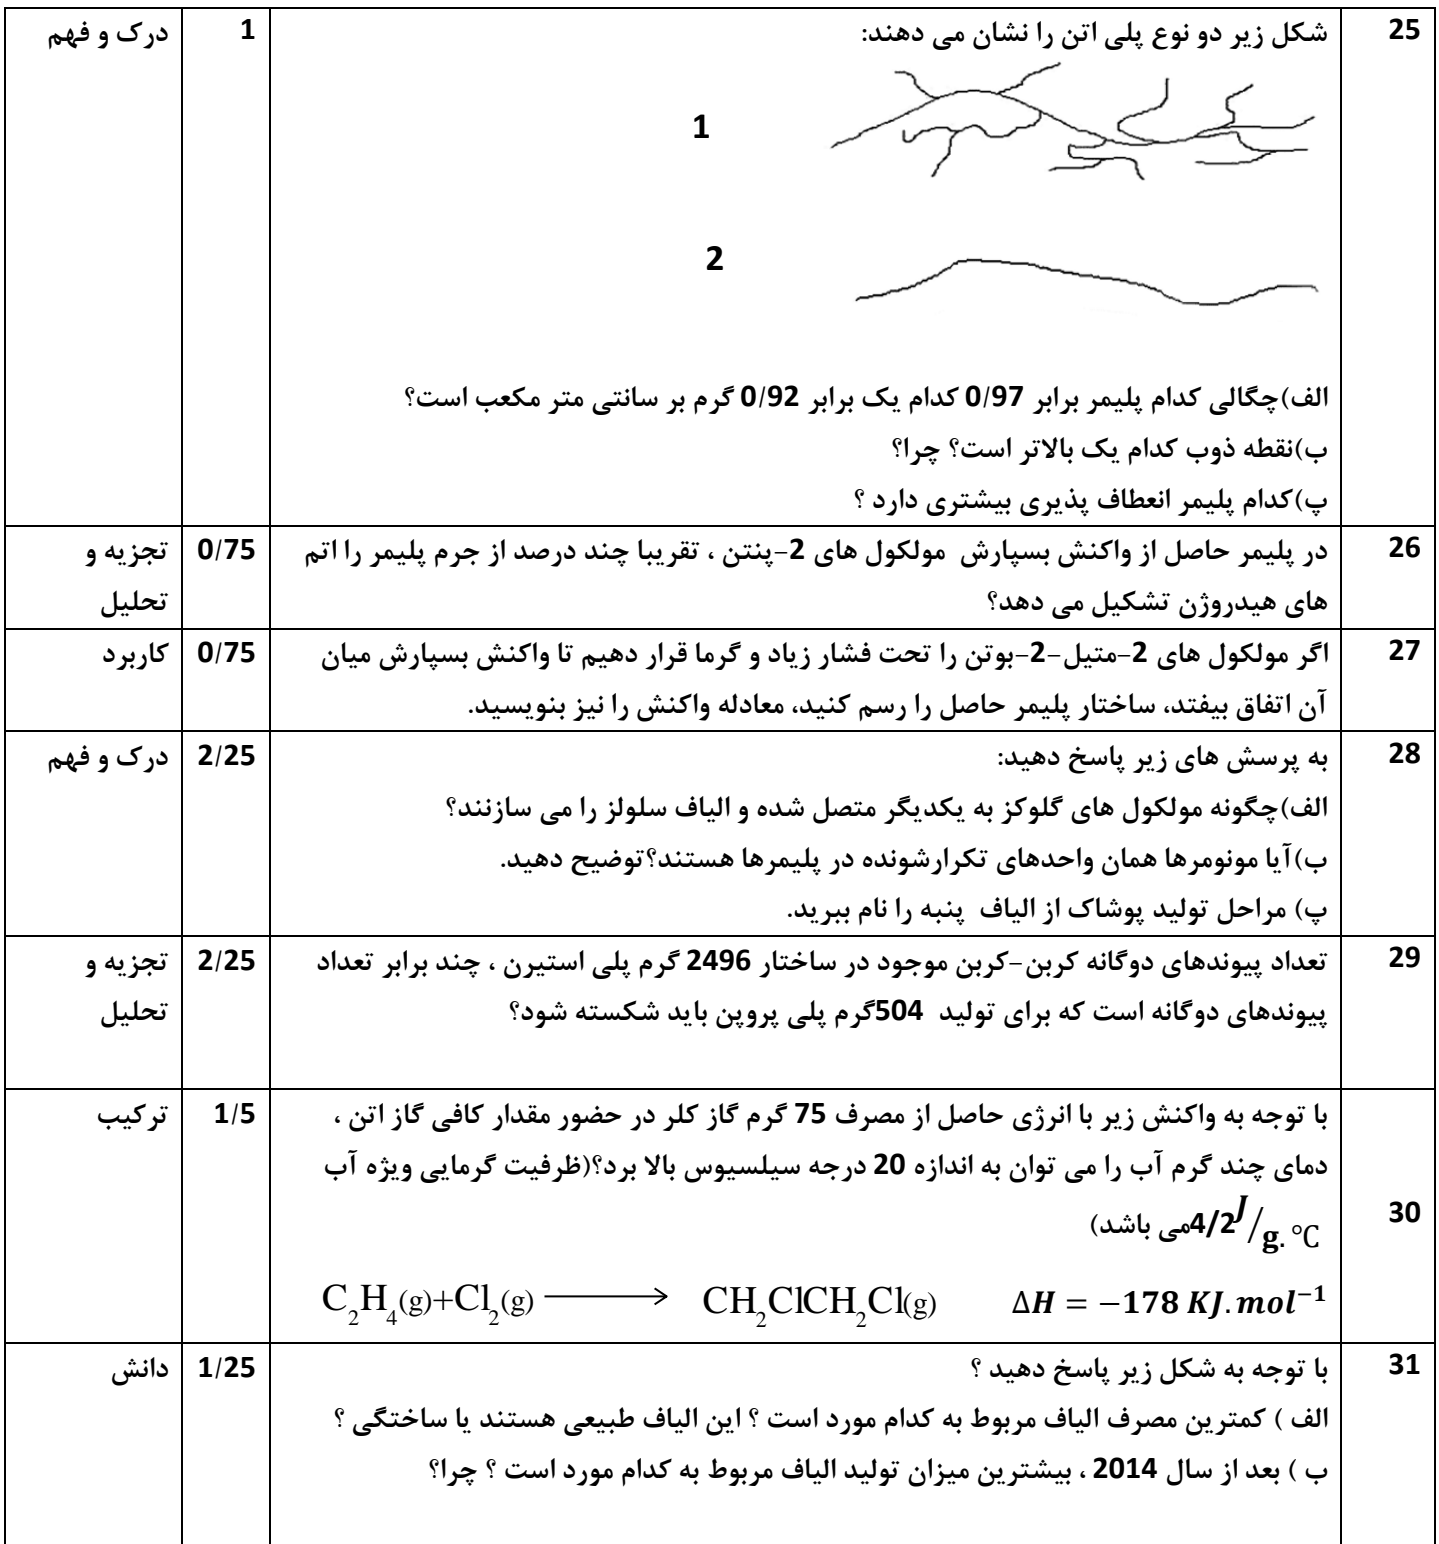 25 شکل زیر دو نوع پلی اتن را نشان می دهند: 1 درک و فهم
1
2
الف)چگالی کدام پلیمر برابر 0/97 کدام یک برابر 0/92 گرم بر سانتی متر مکعب است؟
ب)نقطه ذوب کدام یک بالاتر است؟ چرا؟
پ)کدام پلیمر انعطاف پذیری بیشتری دارد ؟
26 در پلیمر حاصل از واکنش بسپارش مولکول های 2-پنتن ، تقریبا چند درصد از جرم پلیمر را اتم 0/75 تجزیه و
های هیدروژن تشکیل می دهد؟ تحلیل
27 اگر مولکول های 2-متیل-2-بوتن را تحت فشار زیاد و گرما قرار دهیم تا واکنش بسپارش میان 0/75 کاربرد
آن اتفاق بیفتد، ساختار پلیمر حاصل را رسم کنید، معادله واکنش را نیز بنویسید.
28 به پرسش های زیر پاسخ دهید: 2/25 درک و فهم
الف)چگونه مولکول های گلوکز به یکدیگر متصل شده و الیاف سلولز را می سازنند؟
ب)آیا مونومرها همان واحدهای تکرارشونده در پلیمرها هستند؟توضیح دهید.
پ) مراحل تولید پوشاک از الیاف پنبه را نام ببرید.
29 تعداد پیوندهای دوگانه کربن-کربن موجود در ساختار 2496 گرم پلی استیرن ، چند برابر تعداد 2/25 تجزیه و
پیوندهای دوگانه است که برای تولید 504گرم پلی پروپن باید شکسته شود؟ تحلیل
با توجه به واکنش زیر با انرژی حاصل از مصرف 75 گرم گاز کلر در حضور مقدار کافی گاز اتن ، 1/5 ترکیب
دمای چند گرم آب را می توان به اندازه 20 درجه سیلسیوس بالا برد؟(ظرفیت گرمایی ویژه آب
30 4/2 J/g. °C می باشد)
C2H4(g)+Cl2(g) ⟶ CH2ClCH2Cl(g) ΔH = −178 KJ.mol−1
31 با توجه به شکل زیر پاسخ دهید ؟ 1/25 دانش
الف ) کمترین مصرف الیاف مربوط به کدام مورد است ؟ این الیاف طبیعی هستند یا ساختگی ؟
ب ) بعد از سال 2014 ، بیشترین میزان تولید الیاف مربوط به کدام مورد است ؟ چرا؟